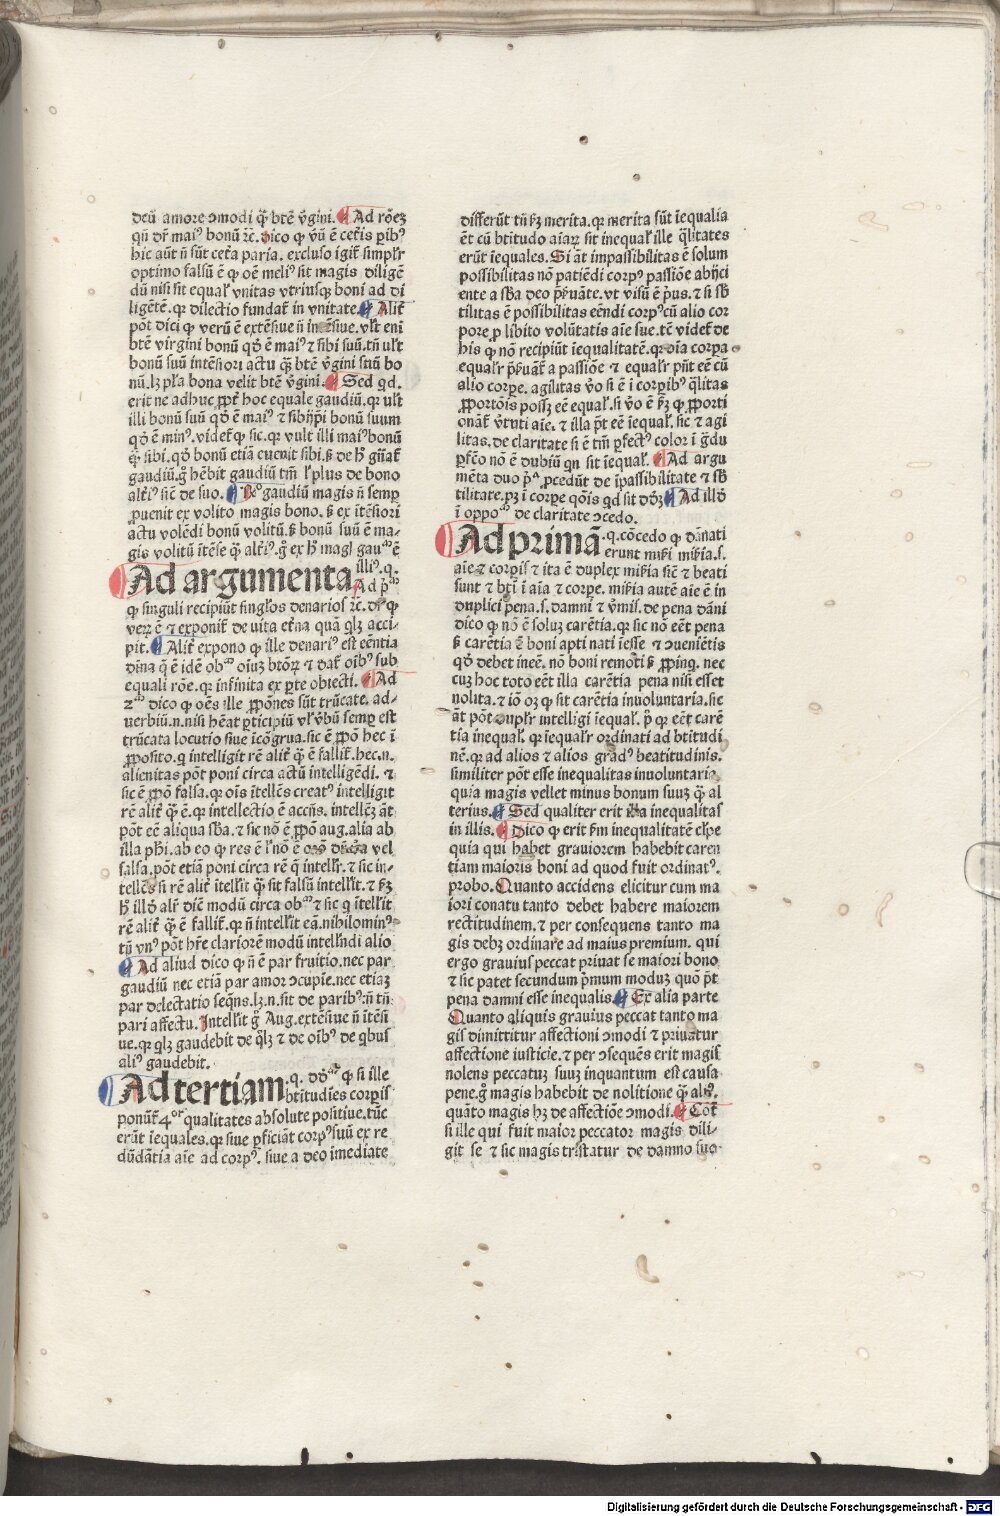 deū amore ↄmodi q̄ꝫ btē v̄gini. Ad rōeꝫ
qn̄ dr̄ maiꝰ bonū ⁊c̄. Dico ꝙ vn̄ ē cet̄is pibꝰ
hic aūt n̄ sūt cet̄a paria. excluso igit̄ simplr̄
optimo falsū ē ꝙ oē meliꝰ sit magis diligē
dū nisi sit equal̄ vnitas vtriusqꝫ boni ad di
ligētē. qꝛ dilectio fundat̄ in vnitate. Alit̄
pōt dici ꝙ verū ē extēsiue n̄ intēsiue. vl̄t eni
btē virgini bonū qḋ ē maiꝰ ⁊ sibi suū. tn̄ vl̄t
bonū suū intēsiori actu q̄ꝫ btē v̄gini suū bo
nū. lꝫ pl̄a bona velit btē v̄gini. Sed qd.
erit ne adhuc ꝓpt̄ hoc equale gaudiū. qꝛ vl̄t
illi bonū suū qḋ ē maiꝰ ⁊ sibijp̄i bonū suum
qḋ ē minꝰ. videt̄ ꝙ sic. qꝛ vult illi maiꝰ bonū
q̄ꝫ sibi. qḋ bonū etiā euenit sibi. ꝫ de ħ gn̄at̄
gaudiū. g̊ hēbit gaudiū tm̄ l̓ plus de bono
alt̓iꝰ sic̄ de suo. Rō gaudiū magis n̄ semꝑ
ꝓuenit ex volito magis bono. ꝫ ex itēsiori
actu volēdi bonū volitū. ꝫ bonū suū ē ma-
gis volitū itēse q̄ꝫ alt̓iꝰ. g̊ ex ħ magꝭ gauᵐ ē
Ad argumenta illiꝰ. q.
Ad pᵐ
ꝙ singuli recipiūt singl̓os denarios ⁊c̄. dꝛ̄ ꝙ
veꝝ ē ⁊ exponit̄ de vita et̄na quā qlꝫ acci-
pit. Alit̄ expono ꝙ ille denariꝰ est eēntia
diuina q̄ ē idē obᵐ oiuꝫ btōꝝ ⁊ dat̄ oībꝰ sub
equali rōe. qꝛ infinita ex ꝑte obiecti. Ad
2ᵐ dico ꝙ oēs ille ꝓpōnes sūt trūcate. ad-
uerbiū. n. nisi hēat ꝑticipiū vl̓ v̓bū semꝑ est
trūcata locutio siue icōgrua. sic ē ꝓpō hec i
ꝓposito. q intelligit rē alit̄ q̄ꝫ ē fallit̄. hec. n.
alienitas pōt poni circa actū intelligēdi. ⁊
sic ē ꝓpō falsa. qꝛ ois itellēs creatꝰ intelligit
rē alit̄ q̄ꝫ ē. qꝛ intellectio ē accn̄s. intellēꝫ āt
pōt eē aliqua sb̄a. ⁊ sic nō ē ꝓpō aug. alia ab
illa pħi. ab eo ꝙ res ē l̓ nō ē vel
falsa. pōt etiā poni circa rē q̄ intellr̄. ⁊ sic in-
tellēs si rē alit̄ itell̓it q̄ꝫ sit falsū intell̓it. ⁊ ẜꝫ
ħ illḋ alt̄ dīē modū circa obᵐ ⁊ sic q itell̓it
rē alit̄ q̄ꝫ ē fallit̄. qꝛ n̄ intell̓it eā. nihilominꝰ
tn̄ vnꝰ pōt hr̄e clariorē modū intell̓ndi alio
Ad aliud dico ꝙ n̄ ē par fruitio. nec par
gaudiū nec etiā par amor ↄcupīe. nec etiaꝫ
par delectatio seqn̄s. lꝫ. n. sit de paribꝰ. n̄ tn̄
pari affectu. Intell̓it g̊ Aug. extēsiue n̄ itēsi
ue. qꝛ qlꝫ gaudebit de q̄lꝫ ⁊ de oībꝰ de qbus
aliꝰ gaudebit.
Ad tertiam. q. dḋᵐ ꝙ si ille
btitudīes corꝑis
ponūt̄ 4ᵒʳ qualitates absolute positiue. tūc
erūt īequales. qꝛ siue ꝑficiāt corpꝰ suū ex re
dūdātia aīe ad corpꝰ. siue a deo imediate
differūt tn̄ ẜꝫ merita. qꝛ merita sūt īequalia
ēt cū btitudo aīaꝝ sit inequal̓ ille q̄litates
erūt īequales. Si āt impassibilitas ē solum
possibilitas nō patiēdi corpꝰ passiōe abijci
ente a sb̄a deo p̄ẜuāte. vt visū ē p̓us. ⁊ si sb̄
tilitas ē possibilitas eēndi corpꝰ cū alio cor
pore ꝓ libito volūtatis aīe sue. tē videt̄ de
his ꝙ nō recipiūt īequalitatē. qꝛ oīa corpa
equalr̄ p̄ẜuāt̄ a passiōe ⁊ equalr̄ pn̄t eē cū
alio corpe. agilitas v̓o si ē i corpibꝰ q̄litas
ꝓportōis possꝫ eē equal̓. si v̓o ē ẜꝫ ꝙ ꝓporti
onāt̄ v̓tuti aīe. ⁊ illa p̄t eē īequal̓. sic ⁊ agi
litas. de claritate si ē tm̄ ꝑfectꝰ color i g̓du
ꝑfc̄o nō ē dubiū qn sit īequal̓. Ad argu
mēta duo pᵃ ꝓcedūt de īpassibilitate ⁊ sb̄
tilitate. pꝫ i corpe qōis qd sit dḋꝫ Ad illḋ
i oppoᵐ de claritate ↄcedo.
Ad primā. q. cōcedo ꝙ dānati
erunt mis̄i mis̄ia. s.
aīe ⁊ corꝑis ⁊ ita ē duplex mis̄ia sic̄ ⁊ beati
sunt ⁊ bt̄i i aīa ⁊ corpe. mis̄ia autē aīe ē in
duplici pena. s. damni ⁊ v̓mis̄. de pena dāni
dico ꝙ nō ē soluꝫ carētia. qꝛ sic nō eēt pena
ẜ carētia ē boni apti nati iēsse ⁊ ↄueniētis
qḋ debet ineē. nō boni remoti ẜ ꝓpinq. nec
cuꝫ hoc toto eēt illa carētia pena nisi esset
nolita. ⁊ iō oꝫ ꝙ sit carētia inuoluntaria. sic
āt pōt dupl̓r intelligi īequal̓. p̊ ꝙ eēt carē
tia inequal̓. qꝛ īequalr̄ ordinati ad btitudi
nē. qꝛ ad alios ⁊ alios gradꝰ beatitudinis.
similiter pōt esse inequalitas inuoluntaria
quia magis vellet minus bonum suuꝫ q̄ꝫ al
terius. Sed qualiter erit ista inequalitas
in illis. Dico ꝙ erit ẜm inequalitatē cul̓pe
quia qui habet grauiorem habebit caren
tiam maioris boni ad quod fuit ordinatꝰ.
probo. Quanto accidens elicitur cum ma
iori conatu tanto debet habere maiorem
rectitudinem. ⁊ per consequens tanto ma
gis debꝫ ordinare ad maius premium. qui
ergo grauius peccat priuat se maiori bono
⁊ sic patet secundum p̓mum moduꝫ quō p̄t
pena damni esse inequalis. Ex alia parte
Quanto aliquis grauius peccat tanto ma
gis dimittitur affectioni ↄmodi ⁊ priuatur
affectione iusticie. ⁊ per ↄsequēs erit magis
nolens peccatuꝫ suuꝫ inquantum est causa
pene. g̊ magis habebit de nolitione q̄ꝫ aliꝰ.
quāto magis hꝫ de affectiōe ↄmodi. Cōt̄
si ille qui fuit maior peccator magis dili-
git se ⁊ sic magis tristatur de damno suo
Digitalisierung gefördert durch die Deutsche Forschungsgemeinschaft - DFG